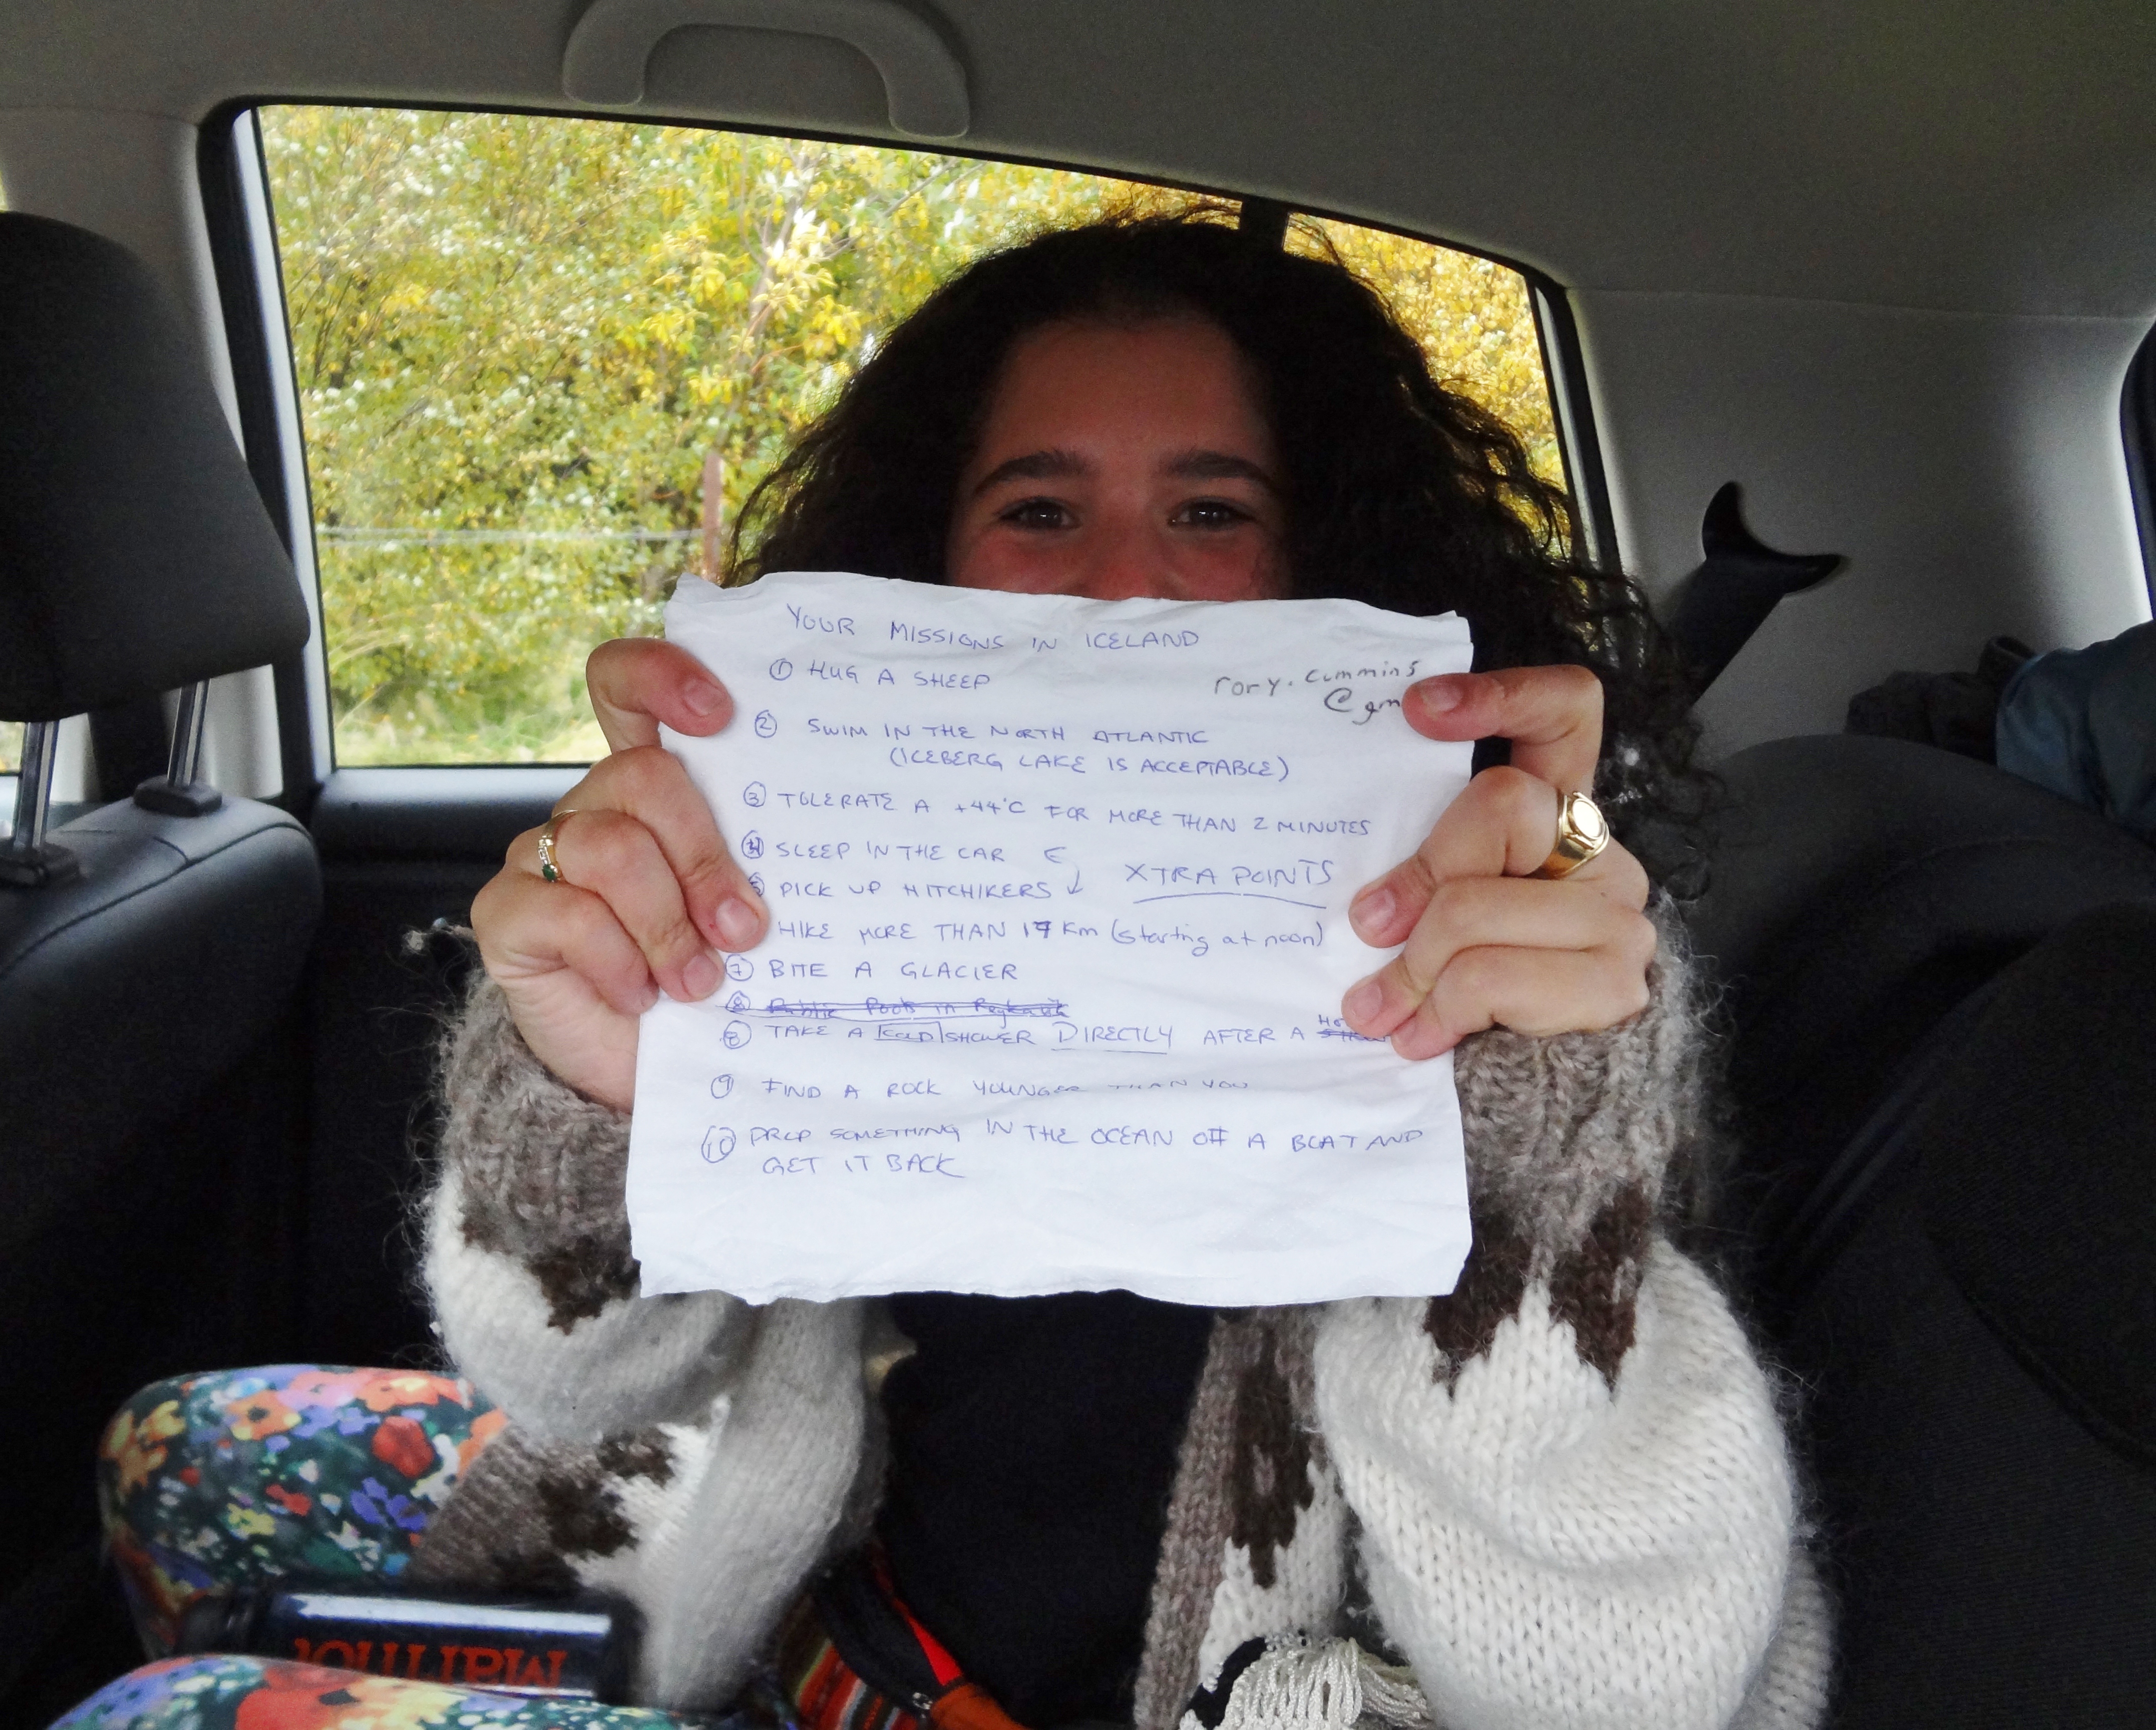 YOUR MISSIONS IN ICELAND
① HUG A SHEEP
rory.cummins
@gm
② SWIM IN THE NORTH ATLANTIC
(ICEBERG LAKE IS ACCEPTABLE)
③ TOLERATE A +44°C FOR MORE THAN 2 MINUTES
④ SLEEP IN THE CAR
XTRA POINTS
⑤ PICK UP HITCHIKERS
HIKE MORE THAN 17 Km (starting at noon)
⑦ BITE A GLACIER
⑧ Public Pools in Reykavik
⑧ TAKE A KOLD SHOWER DIRECTLY AFTER A
⑨ FIND A ROCK YOUNGER THAN YOU
⑩ DROP SOMETHING IN THE OCEAN OFF A BOAT AND
GET IT BACK